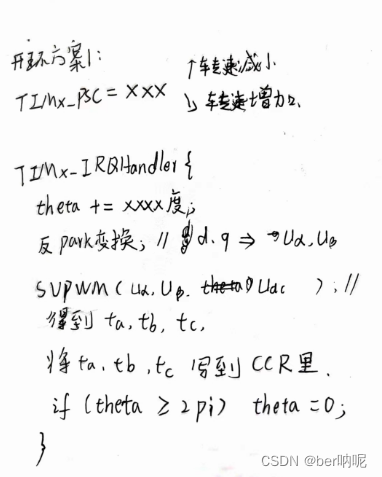 开环方案1:
TIMx_PSC = XXX ↑转速减小 ↓转速增加
TIMx_IRQHandler {
theta += xxxx度;
反park变换; // d.q ⇒ Uα,Uβ
SVPWM(Uα,Uβ. Udc ); //
得到 ta, tb, tc,
将 ta, tb, tc 写到CCR里.
if (theta ≥ 2pi) theta = 0;
}
CSDN @ber呐呢